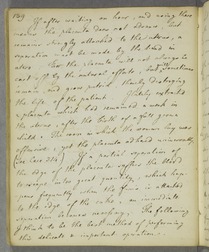 249
If after waiting an hour, and using these
means the placenta does not advance, but
remains strongly attached to the uterus, a
separation must be made by the hand in
utero. For the placenta will not always be
cast off by the natural efforts, but sometimes
remain, and grow putrid thereby destroying
the life of the patient. I lately extracted
a placenta which had remained a week in
the uterus after the birth of a fit's grown
child. The room in which the woman lay was
offensive, yet the placenta adhered universally,
(see Case 210) If a partial separation of
the edge of the placenta suffers the blood
to escape in great quantity, which happens
very frequently when the funis is attached
to the edge of the cake, an immediate
separation becomes necessary. The following
I think to be the best method of performing
this delicate & important operation: